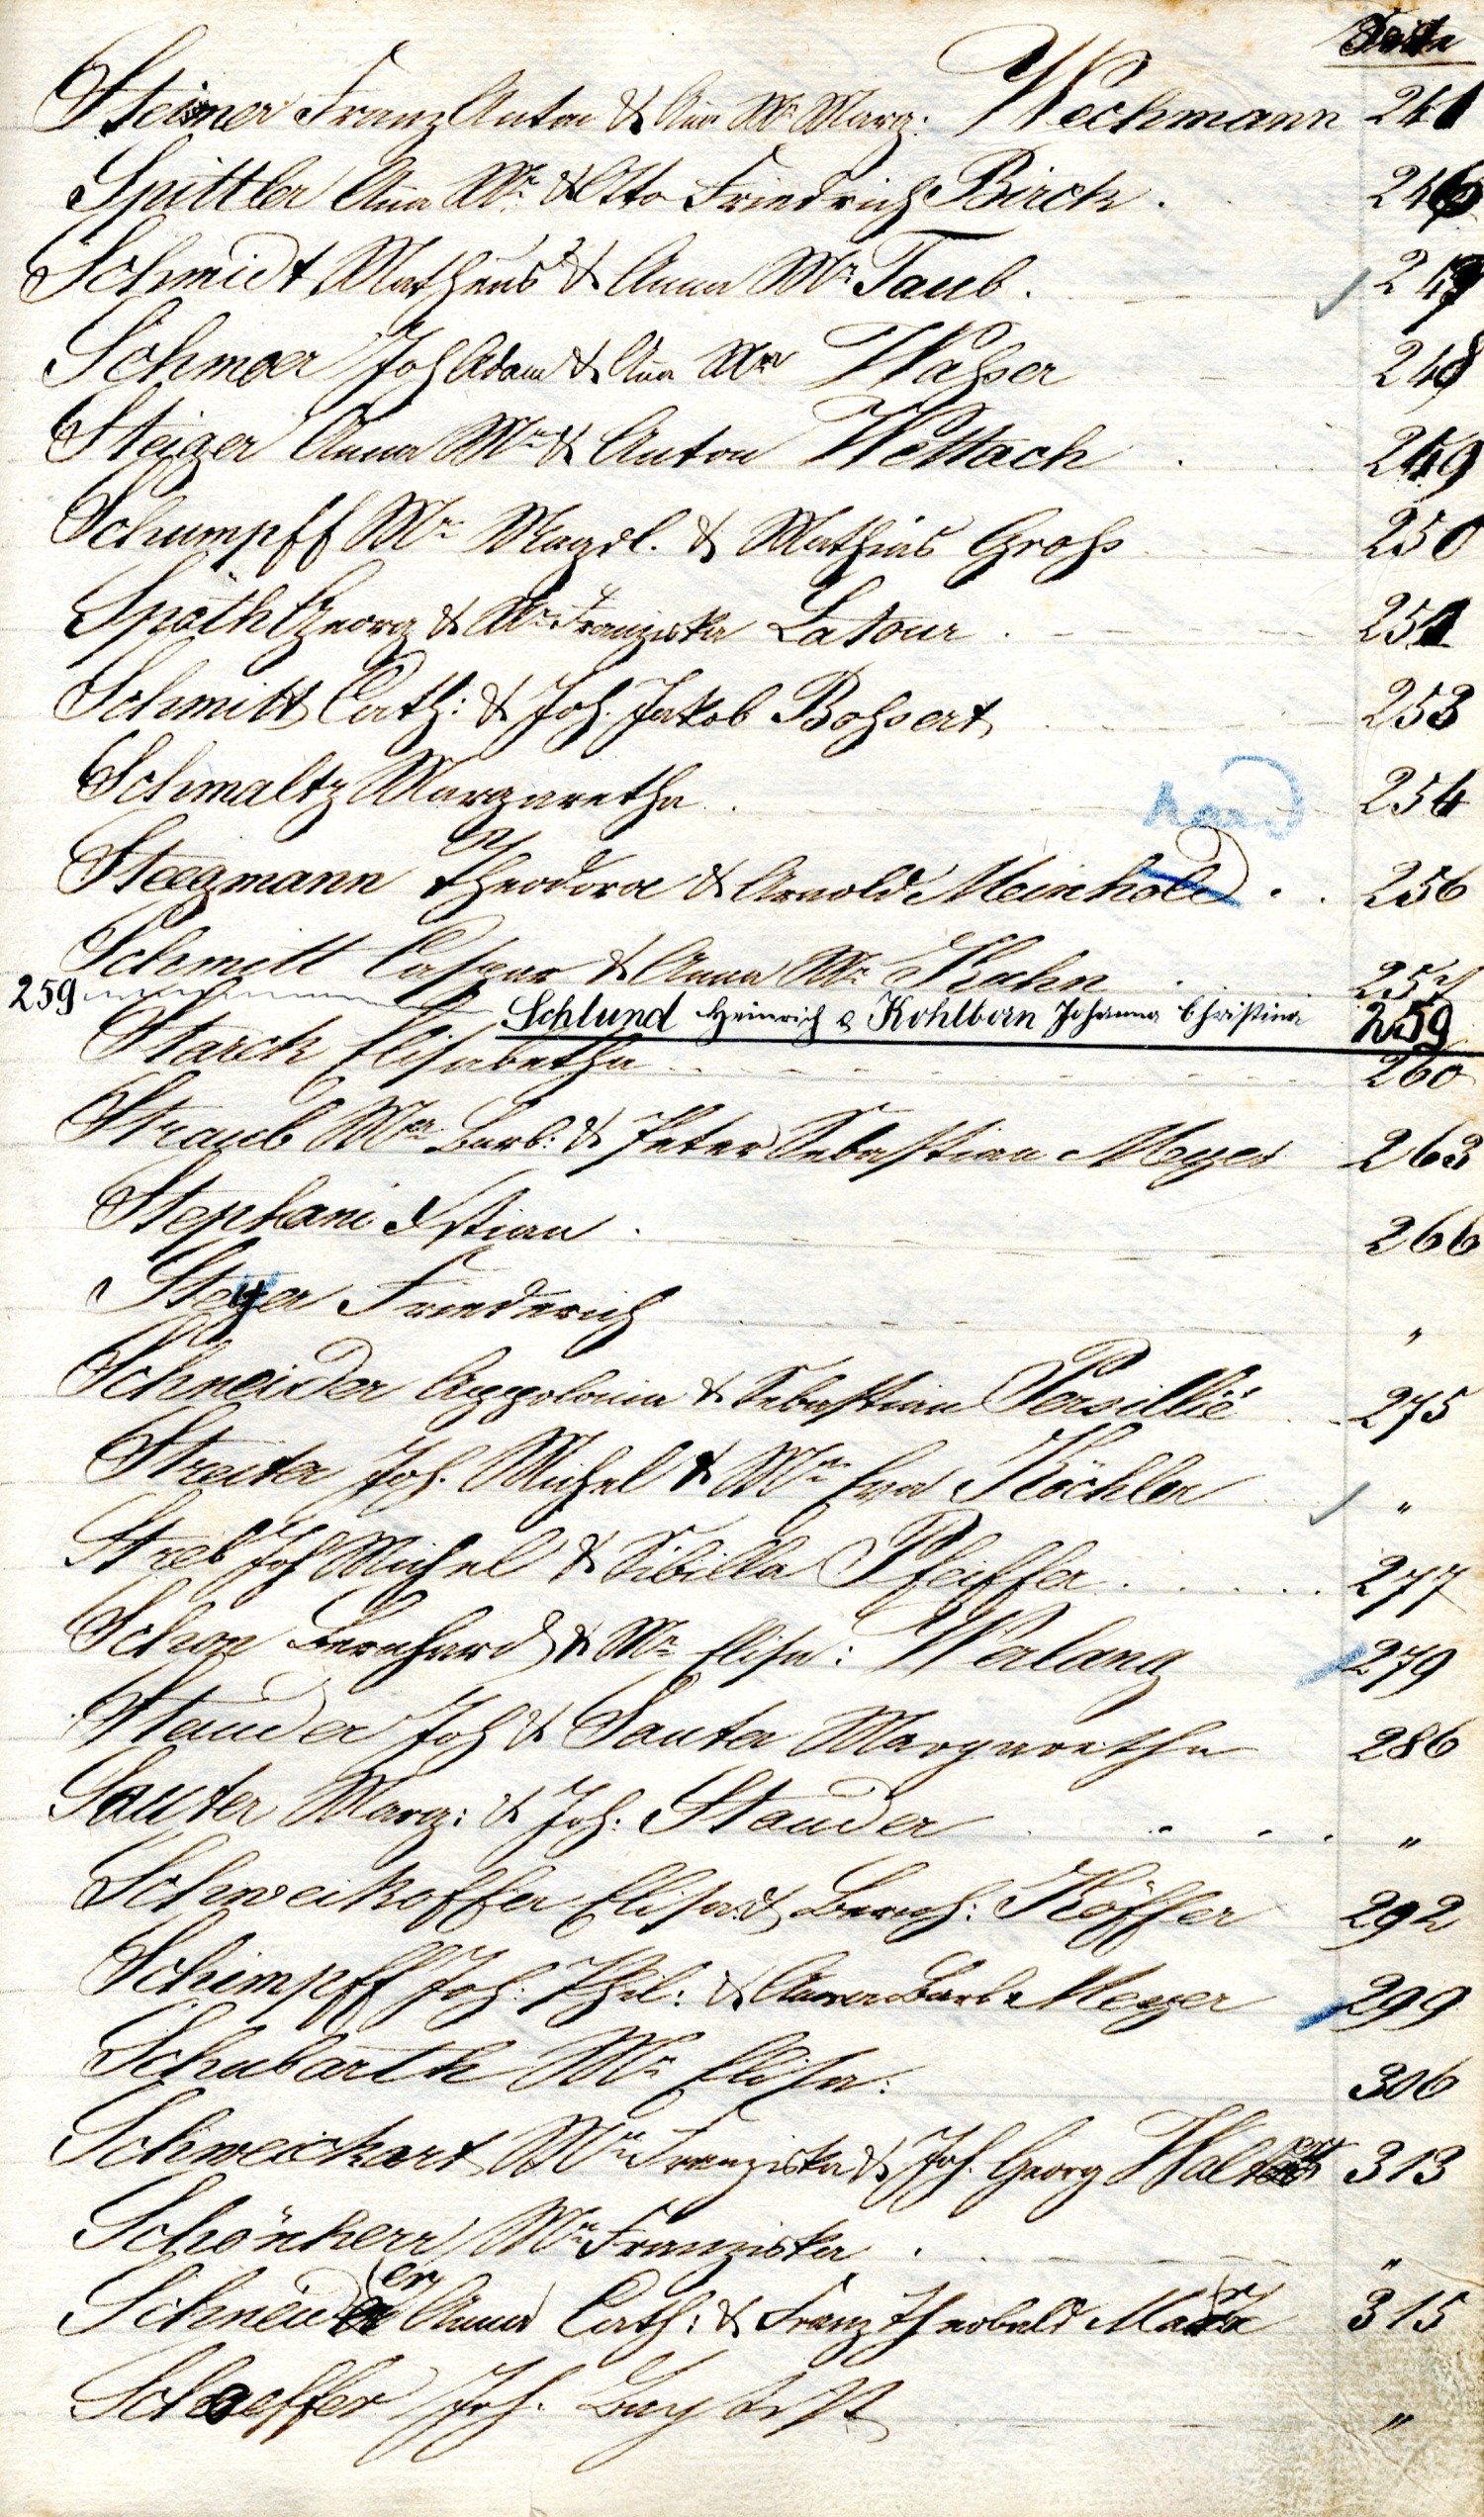 Seite
Steiner Franz Anton & Ana Mª Marg: Wechmann 241
Spittler Ana Mª & Otto Friedrich Birck . 246
Schmidt Matheus & Anna Mª Taub . 247
Schmoer Joh Adam & Ana Mª Walser 248
Steiger Anna Mª & Anton Wettach . 249
Schumpff Mª Magdl. & Mathias Groß 250
Späth Georg & Mª Franziska Latour . 251
Schmitt Cath: & Joh. Jakob Boßert 253
Schmaltz Margaretha . 254
hard
Steegmann Theodora & Arnold Meinhold . . 256
Schmitt Caspar & Anna Mª Kuhn . 257
259 Schlund Heinrich & Kohlborn Johanna Christina 259
Starck Elisabetha 260
Straub Mª Barb: & Peter Sebastian Meyer 263
Stephani Xstian . 266
Steyer Friederich "
Schneider Appolonia & Sebastian Persillié 275
Streiter Joh. Michel & Mª Eva Köchler "
Streb Joh Michel & Sibilla Pfeiffer . 277
Schon Bernhard & Mª Elisa: Werlang 279
Stauder Joh & Sauter Margaretha 286
Sauter Marg: & Joh. Stauder "
Schweikoffer Elisa: & Bernh: Höffer 292
Schimpff Joh. Phil: & Anna Barb. Meyer 299
Schubarth Mª Elisa: 306
Schweickart Mª Franziska & Joh. Georg 313
Schönherr Mª Franziska . "
Schneider Anna Cath: & Franz Theobald 315
Schaeffer Joh. Baptist "